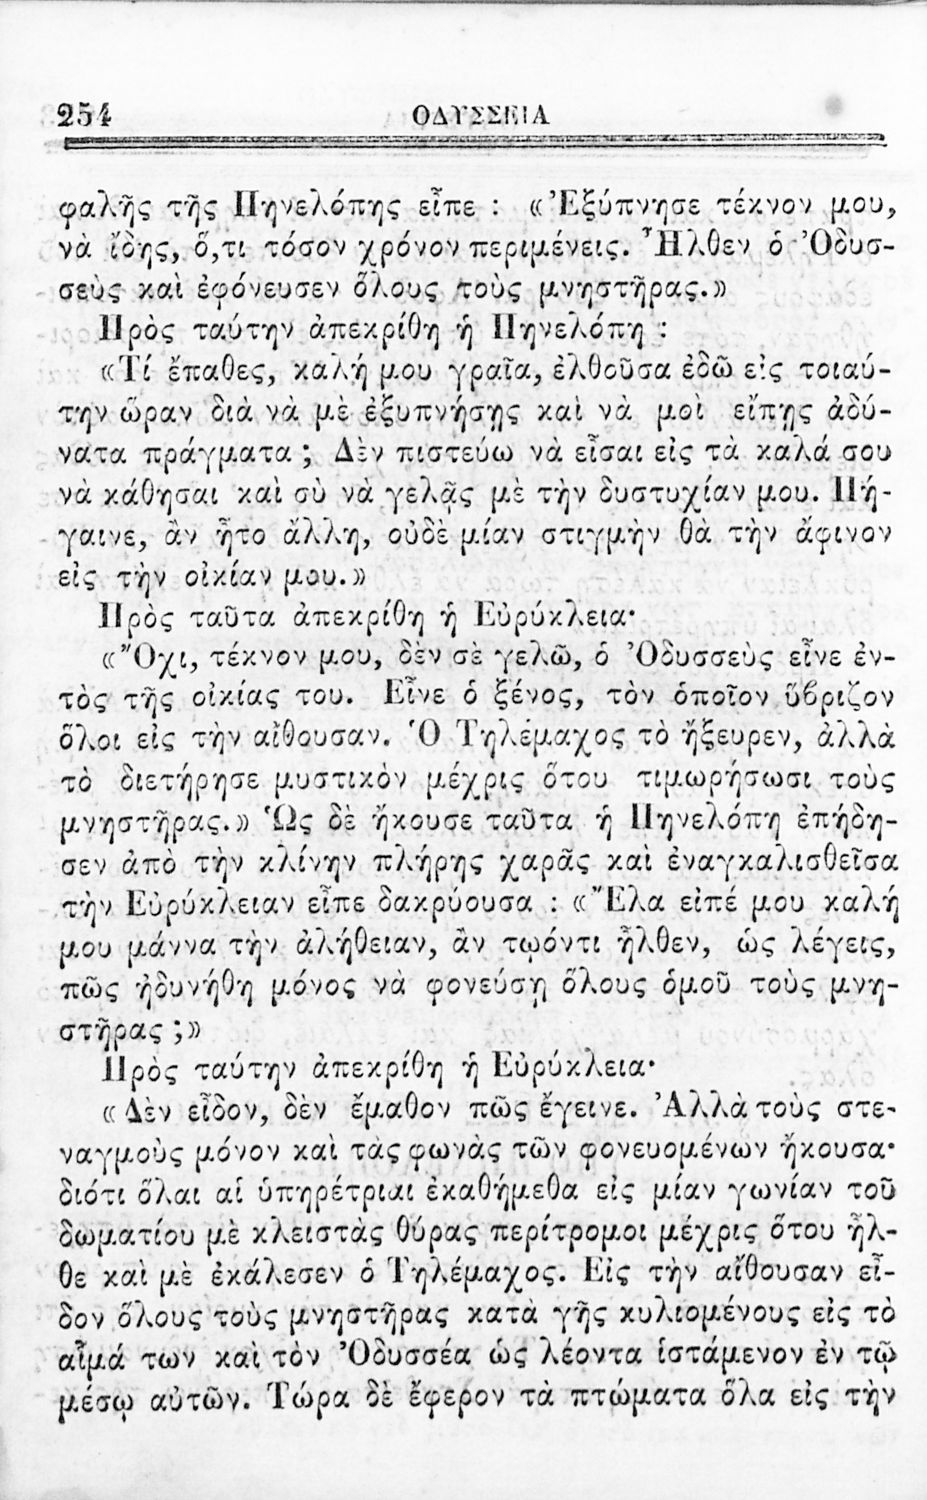 254 ΟΔΥΣΣΕΙΑ
φαλῆς τῆς Πηνελόπης εἶπε : «Ἐξύπνησε τέκνον μου,
νὰ ἴδης, ὅ,τι τόσον χρόνον περιμένεις. Ἦλθεν ὁ Ὀδυσ-
σεὺς καὶ ἐφόνευσεν ὅλους τοὺς μνηστῆρας.»
Πρὸς ταύτην ἀπεκρίθη ἡ Πηνελόπη :
«Τί ἔπαθες, καλή μου γραῖα, ἐλθοῦσα ἐδῶ εἰς τοιαύ-
την ὥραν διὰ νὰ μὲ ἐξυπνήσῃς καὶ νὰ μοὶ εἴπῃς ἀδύ-
νατα πράγματα ; Δὲν πιστεύω νὰ εἶσαι εἰς τὰ καλά σου
νὰ κάθησαι καὶ σὺ νὰ γελᾷς μὲ τὴν δυστυχίαν μου. Πή-
γαινε, ἂν ἦτο ἄλλη, οὐδὲ μίαν στιγμὴν θὰ τὴν ἄφινον
εἰς τὴν οἰκίαν μου.»
Πρὸς ταῦτα ἀπεκρίθη ἡ Εὐρύκλεια·
«Ὄχι, τέκνον μου, δὲν σὲ γελῶ, ὁ Ὀδυσσεὺς εἶνε ἐν-
τὸς τῆς οἰκίας του. Εἶνε ὁ ξένος, τὸν ὁποῖον ὕβριζον
ὅλοι εἰς τὴν αἴθουσαν. Ὁ Τηλέμαχος τὸ ἤξευρεν, ἀλλὰ
τὸ διετήρησε μυστικὸν μέχρις ὅτου τιμωρήσωσι τοὺς
μνηστῆρας.» Ὡς δὲ ἤκουσε ταῦτα ἡ Πηνελόπη ἐπήδη-
σεν ἀπὸ τὴν κλίνην πλήρης χαρᾶς καὶ ἐναγκαλισθεῖσα
τὴν Εὐρύκλειαν εἶπε δακρύουσα : «Ἔλα εἰπέ μου καλή
μου μάννα τὴν ἀλήθειαν, ἂν τῳόντι ἦλθεν, ὡς λέγεις,
πῶς ἠδυνήθη μόνος νὰ φονεύσῃ ὅλους ὁμοῦ τοὺς μνη-
στῆρας ;»
Πρὸς ταύτην ἀπεκρίθη ἡ Εὐρύκλεια·
«Δὲν εἶδον, δὲν ἔμαθον πῶς ἔγεινε. Ἀλλὰ τοὺς στε-
ναγμοὺς μόνον καὶ τὰς φωνὰς τῶν φονευομένων ἤκουσα·
διότι ὅλαι αἱ ὑπηρέτριαι ἐκαθήμεθα εἰς μίαν γωνίαν τοῦ
δωματίου μὲ κλειστὰς θύρας περίτρομοι μέχρις ὅτου ἦλ-
θε καὶ μὲ ἐκάλεσεν ὁ Τηλέμαχος. Εἰς τὴν αἴθουσαν εἶ-
δον ὅλους τοὺς μνηστῆρας κατὰ γῆς κυλιομένους εἰς τὸ
αἷμά των καὶ τὸν Ὀδυσσέα ὡς λέοντα ἱστάμενον ἐν τῷ
μέσῳ αὐτῶν. Τώρα δὲ ἔφερον τὰ πτώματα ὅλα εἰς τὴν